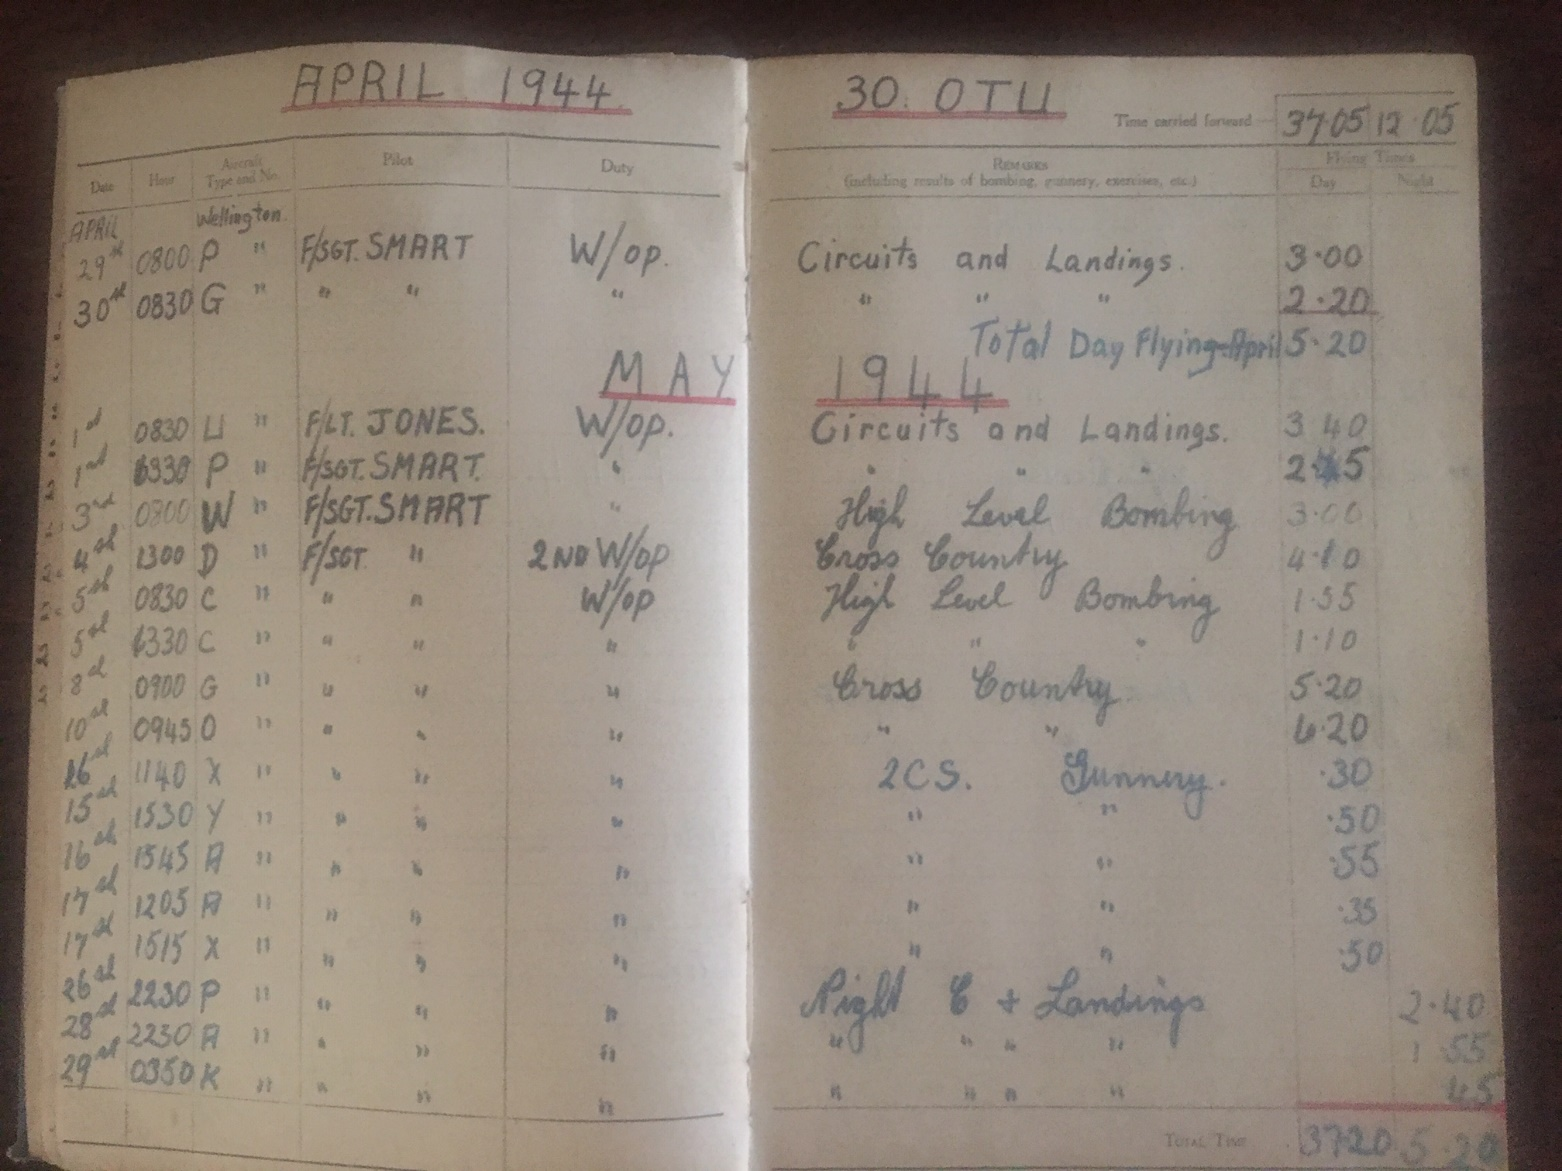 APRIL 1944 30. OTU
Time carried forward 37·05 12·05
Date Hour Aircraft Type and No. Pilot Duty REMARKS (including results of bombing, gunnery, exercises, etc.) Flying Times Day Night
APRIL Wellington
29 0800 P " F/SGT. SMART W/op. Circuits and Landings. 3·00
30 0830 G " " " " " " " 2·20
Total Day Flying-April 5·20
MAY 1944
1 0830 U " F/LT. JONES. W/op. Circuits and Landings. 3 40
1 P " F/SGT. SMART. " " " "
3rd 0800 W " F/SGT. SMART " High Level Bombing 3·00
4 1300 D " F/SGT " 2ND W/op Cross Country 4·10
5 0830 C " " " W/op High Level Bombing 1·55
5 C " " " " " " " 1·10
8 0900 G " " " " Cross Country 5·20
10 0945 O " " " " " "
1140 X " " " " 2CS. Gunnery. ·30
15 1530 Y " " " " " " ·50
16 1545 A " " " " " " ·55
17 1205 A " " " " " " ·35
17 1515 X " " " " " " ·50
26 2230 P " " " " Night C + Landings 2·40
28 2230 A " " " " " " " " 1 55
29 0350 K " " " " " " " " 45
TOTAL TIME 3720 5·20